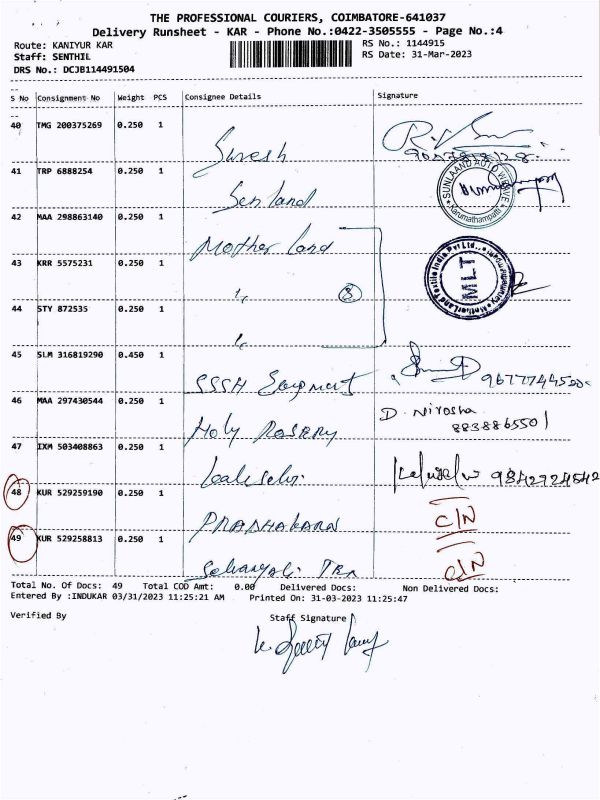 THE PROFESSIONAL COURIERS, COIMBATORE-641037
Delivery Runsheet - KAR - Phone No.:0422-3505555 - Page No.:4
Route: KANIYUR KAR
Staff: SENTHIL
DRS No.: DCJB114491504
RS No.: 1144915
RS Date: 31-Mar-2023
S No Consignment No Weight PCS Consignee Details Signature
40 TMG 200375269 0.250 1
Suresh
41 TRP 6888254 0.250 1
Sen land
SUNLAAND AUTO WEAVE
Karumathampatti
42 MAA 298863140 0.250 1
Mother land
43 KRR 5575231 0.250 1
" 3
MLT
44 STY 872535 0.250 1
"
45 SLM 316819290 0.450 1
SSSH 9677744500
46 MAA 297430544 0.250 1
Holy Rosery
D. Nirosha
8838865501
47 IXM 503408863 0.250 1
9842724542
48 KUR 529259190 0.250 1
PRABHAKARN
C/N
49 KUR 529258813 0.250 1
C/N
Total No. Of Docs: 49 Total COD Amt: 0.00 Delivered Docs: Non Delivered Docs:
Entered By :INDUKAR 03/31/2023 11:25:21 AM Printed On: 31-03-2023 11:25:47
Verified By Staff Signature